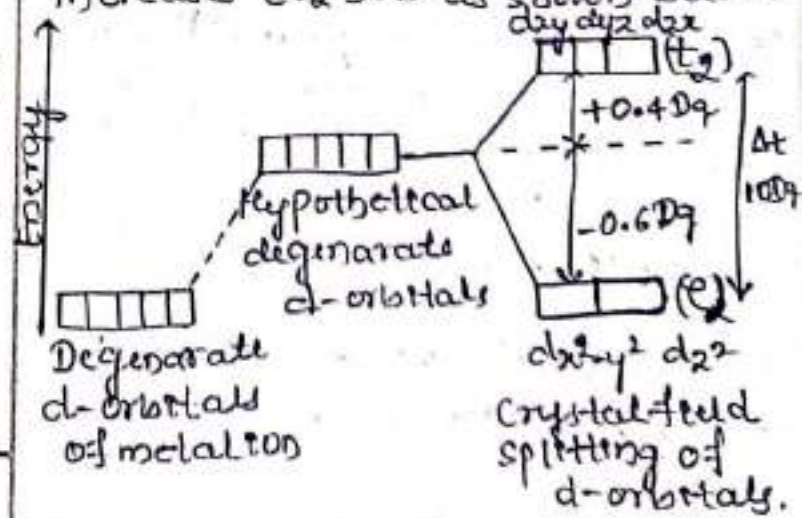 as
dxy dyz dzx
(t2)
+0.4Dq
Energy
Δt
10Dq
Hypothetical
degenarate
d-orbitals
-0.6Dq
(e)
Degenarate
d-orbitals
of metal ion
dx²-y² dz²
Crystal field
splitting of
d-orbitals.